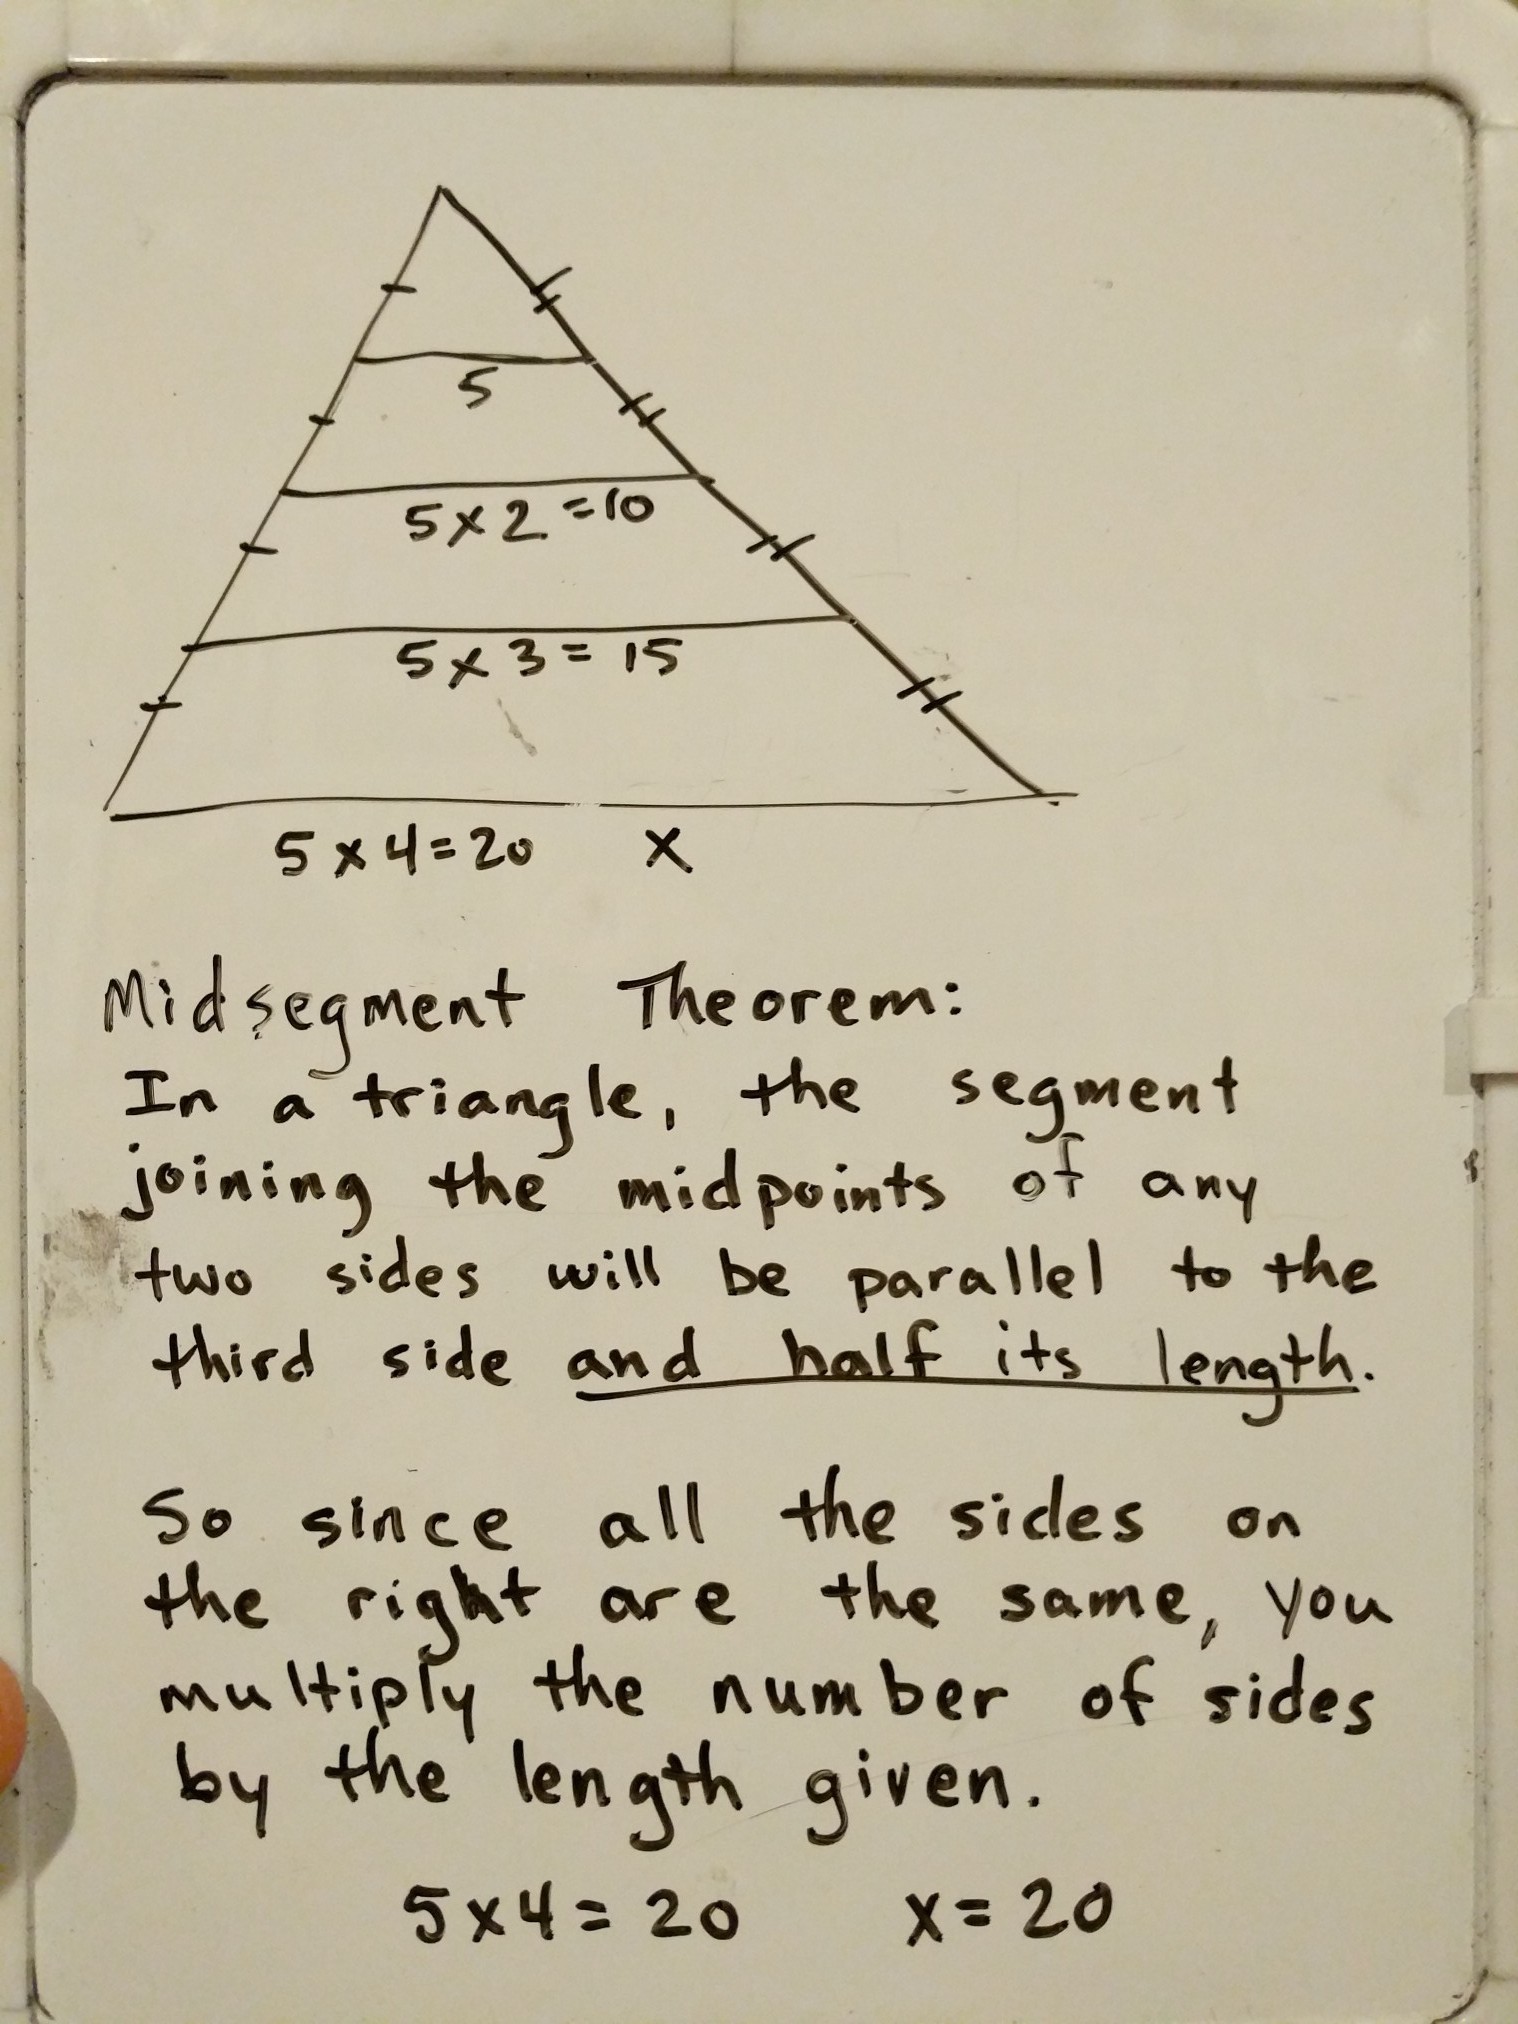 5
5x2=10
5x3=15
5x4=20 x
Midsegment Theorem:
In a triangle, the segment
joining the midpoints of any
two sides will be parallel to the
third side and half its length.
So since all the sides on
the right are the same, you
multiply the number of sides
by the length given.
5x4=20 x=20